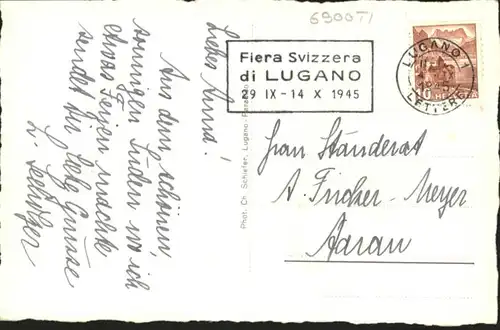 6900TI
Fiera Svizzera
di LUGANO
29 IX - 14 X 1945
LUGANO 1
LETTERE
Liebes Anna!
Aus dem schönen,
sonnigen Süden wo ich
etwas Ferien machte
sendet dir liebe Grüsse
Phot. Ch. Schiefer, Lugano
Herrn Ständerat
A. Fischer-Meyer
Aarau